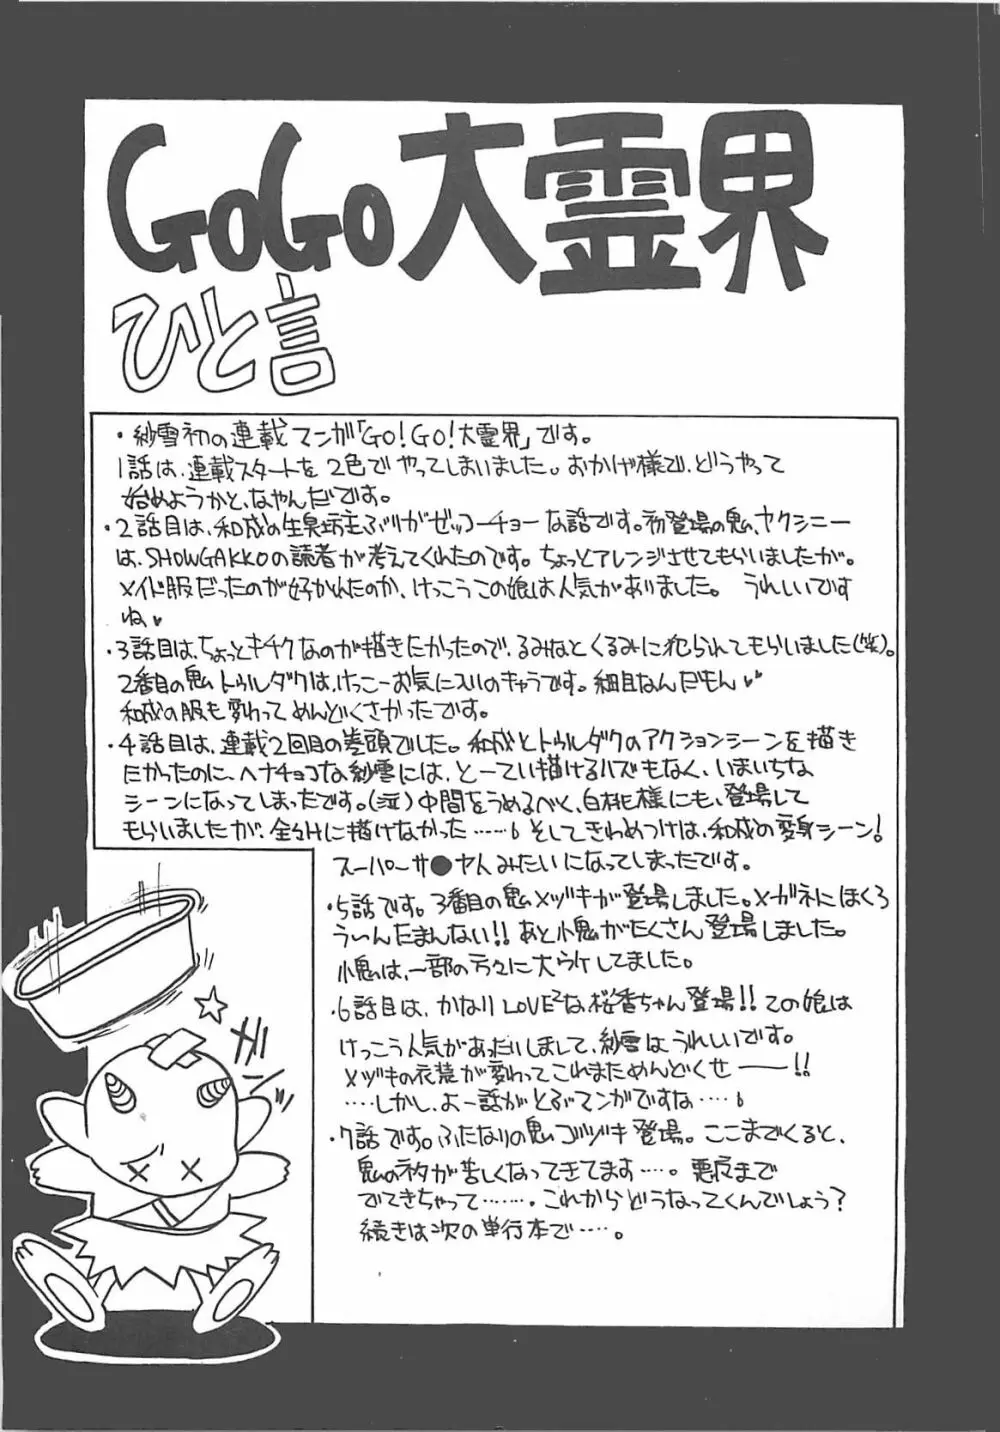 GoGo大霊界
ひと言
・紗雪初の連載マンガ「GO!GO!大霊界」です。
1話は、連載スタートを2色でやってしまいました。おかげ様で、どうやって
始めようかと、なやんだです。
・2話目は、和成の生臭坊主ぶりがゼッコーチョーな話です。初登場の鬼、ヤクシニー
は、SHOWGAKKOの読者が考えてくれたのです。ちょっとアレンジさせてもらいましたが。
メイド服だったのが好かれたのか、けっこうこの娘は人気がありました。 うれしいです
ね♥
・3話目は、ちょっとキチクなのが描きたかったので、るみなとくるみに犯られてもらいました(笑)。
2番目の鬼トゥルダクは、けっこーお気に入りのキャラです。細目なんだもん♥♥
和成の服も変わってめんどくさかったです。
・4話目は、連載2回目の巻頭でした。和成とトゥルダクのアクションシーンを描き
たかったのに、ヘナチョコな紗雪には、とーてい描けるハズもなく、いまいちな
シーンになってしまったです。(泣)中間をうめるべく、白桃様にも、登場して
もらいましたが、全々Hに描けなかった……。そしてきわめつけは、和成の変身シーン!
スーパーサ●ヤ人みたいになってしまったです。
・5話です。3番目の鬼メヅキが登場しました。メガネにほくろ
うぃんたまんない!!あと小鬼がたくさん登場しました。
小鬼は、一部の方々に大ウケしてました。
・6話目は、かなりLOVE²な、桜香ちゃん登場!!この娘は
けっこう人気があったりしまして、紗雪はうれしいです。
メヅキの衣装が変わってこれまためんどくせ――!!
‥‥しかし、よー話がとぶマンガですな……。
・7話です。ふたなりの鬼ゴヅキ登場。ここまでくると、
鬼のネタが苦しくなってきてます…。悪尻まで
でてきちゃって……。これからどうなってくんでしょう?
続きは次の単行本で…。